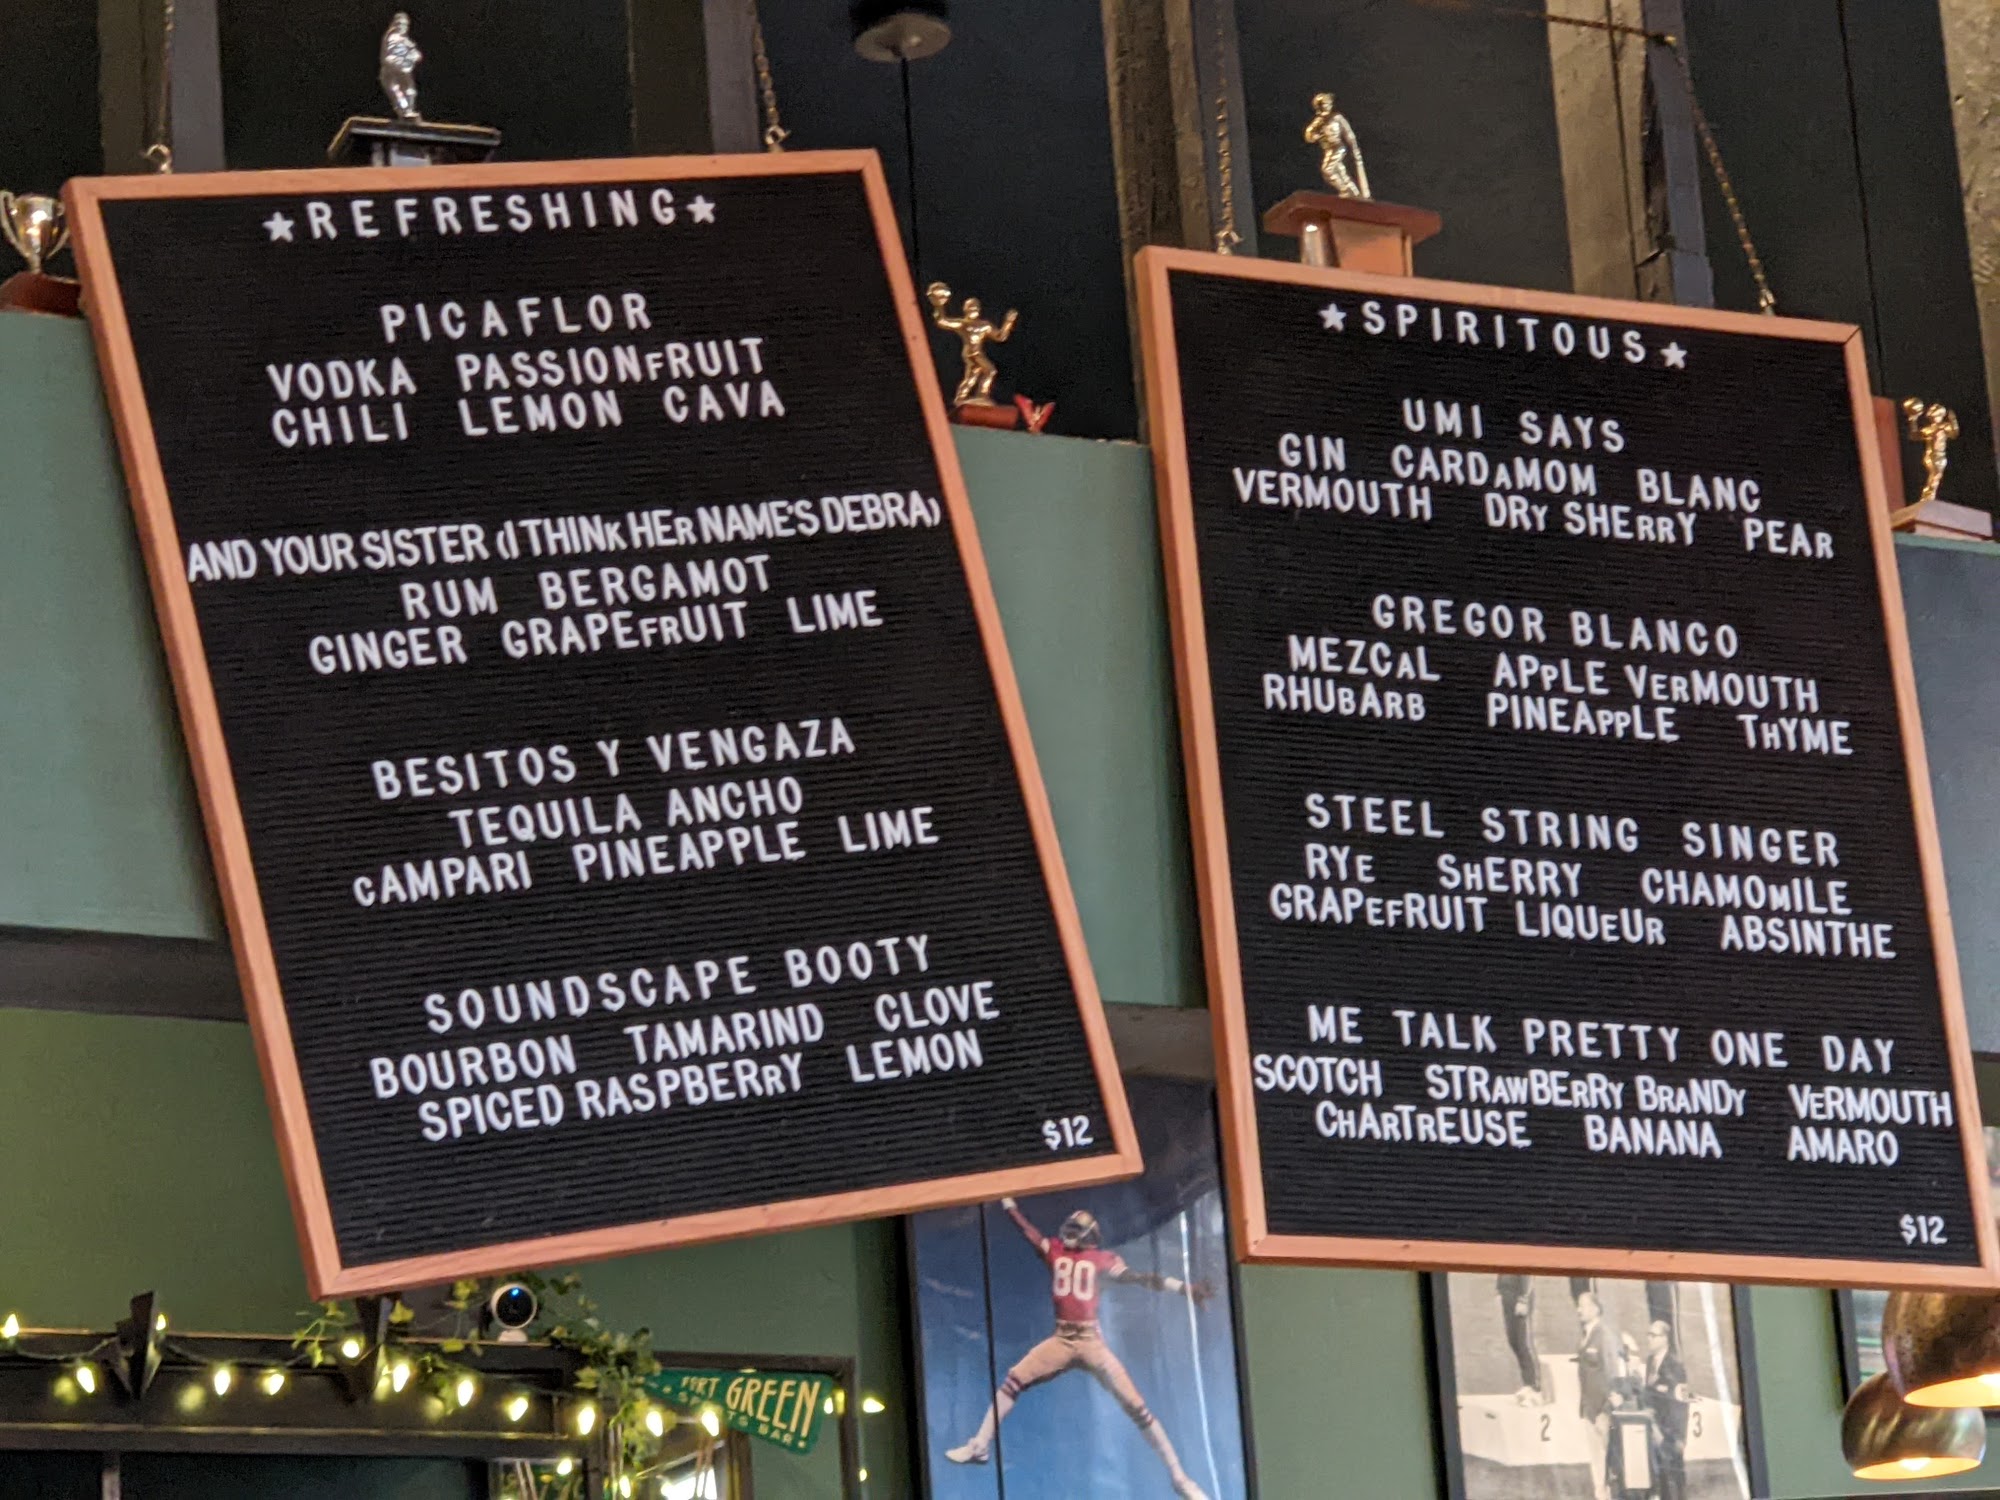 ★REFRESHING★
PICAFLOR
VODKA PASSIONFRUIT
CHILI LEMON CAVA
AND YOUR SISTER (I THINK HER NAME'S DEBRA)
RUM BERGAMOT
GINGER GRAPEFRUIT LIME
BESITOS Y VENGAZA
TEQUILA ANCHO
CAMPARI PINEAPPLE LIME
SOUNDSCAPE BOOTY
BOURBON TAMARIND CLOVE
SPICED RASPBERRY LEMON
$12
★SPIRITOUS★
UMI SAYS
GIN CARDAMOM BLANC
VERMOUTH DRY SHERRY PEAR
GREGOR BLANCO
MEZCAL APPLE VERMOUTH
RHUBARB PINEAPPLE THYME
STEEL STRING SINGER
RYE SHERRY CHAMOMILE
GRAPEFRUIT LIQUEUR ABSINTHE
ME TALK PRETTY ONE DAY
SCOTCH STRAWBERRY BRANDY VERMOUTH
CHARTREUSE BANANA AMARO
$12
80
FORT GREEN
SPORTS BAR
2
3